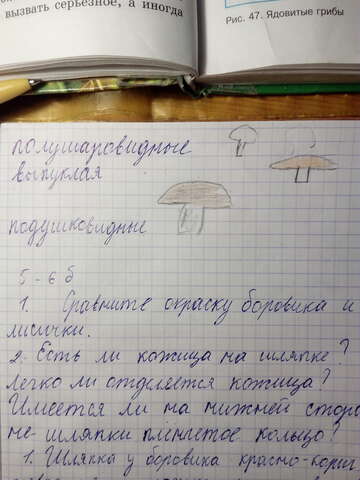 вызвать серьезное, а иногда
Рис. 47. Ядовитые грибы
полушаровидные
выпуклая
подушковидные
5-6 б
1. Сравните окраску боровика и
лисички.
2. Есть ли кожица на шляпке?
Легко ли отделяется кожица?
Имеется ли на нижней сторо
не шляпки плёнчетое кольцо?
1. Шляпка у боровика красно-кориг